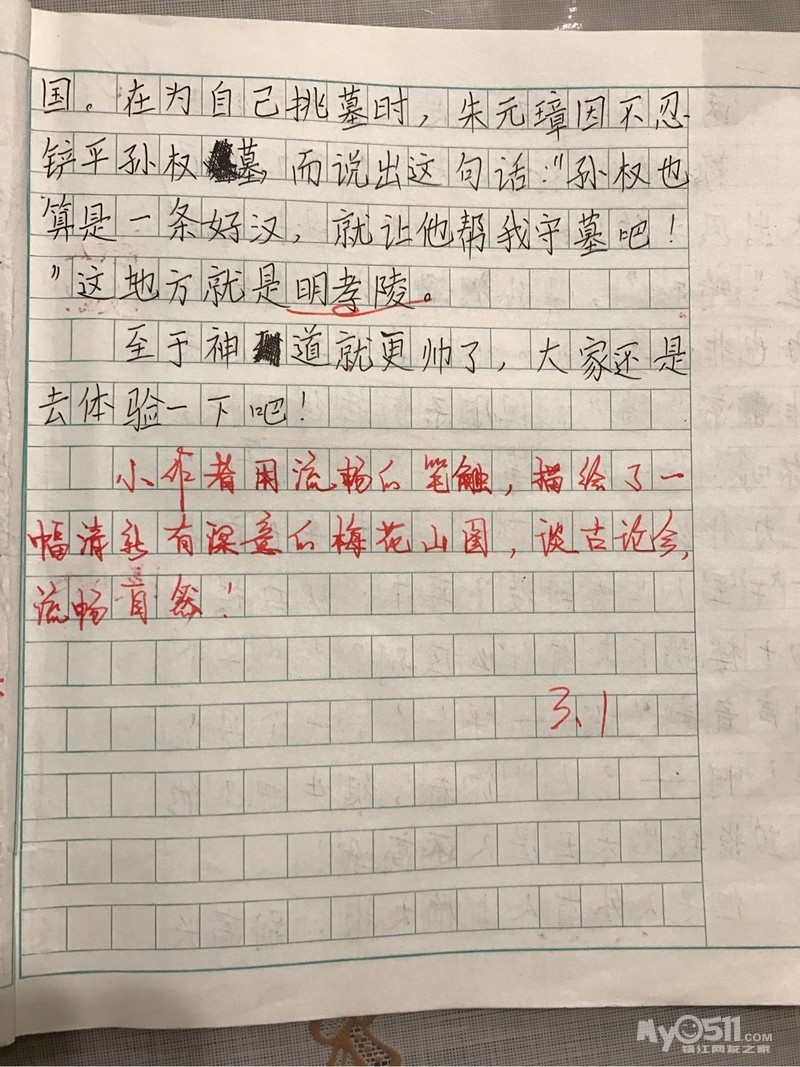 国。在为自己挑墓时，朱元璋因不忍
铲平孙权墓，而说出这句话："孙权也
算是一条好汉，就让他帮我守墓吧！
"这地方就是明孝陵。
至于神道就更帅了，大家还是
去体验一下吧！
小作者用流畅的笔触，描绘了一
幅清新有深意的梅花山图，谈古论今，
流畅自然！
3.1
My0511.COM
镇江网友之家